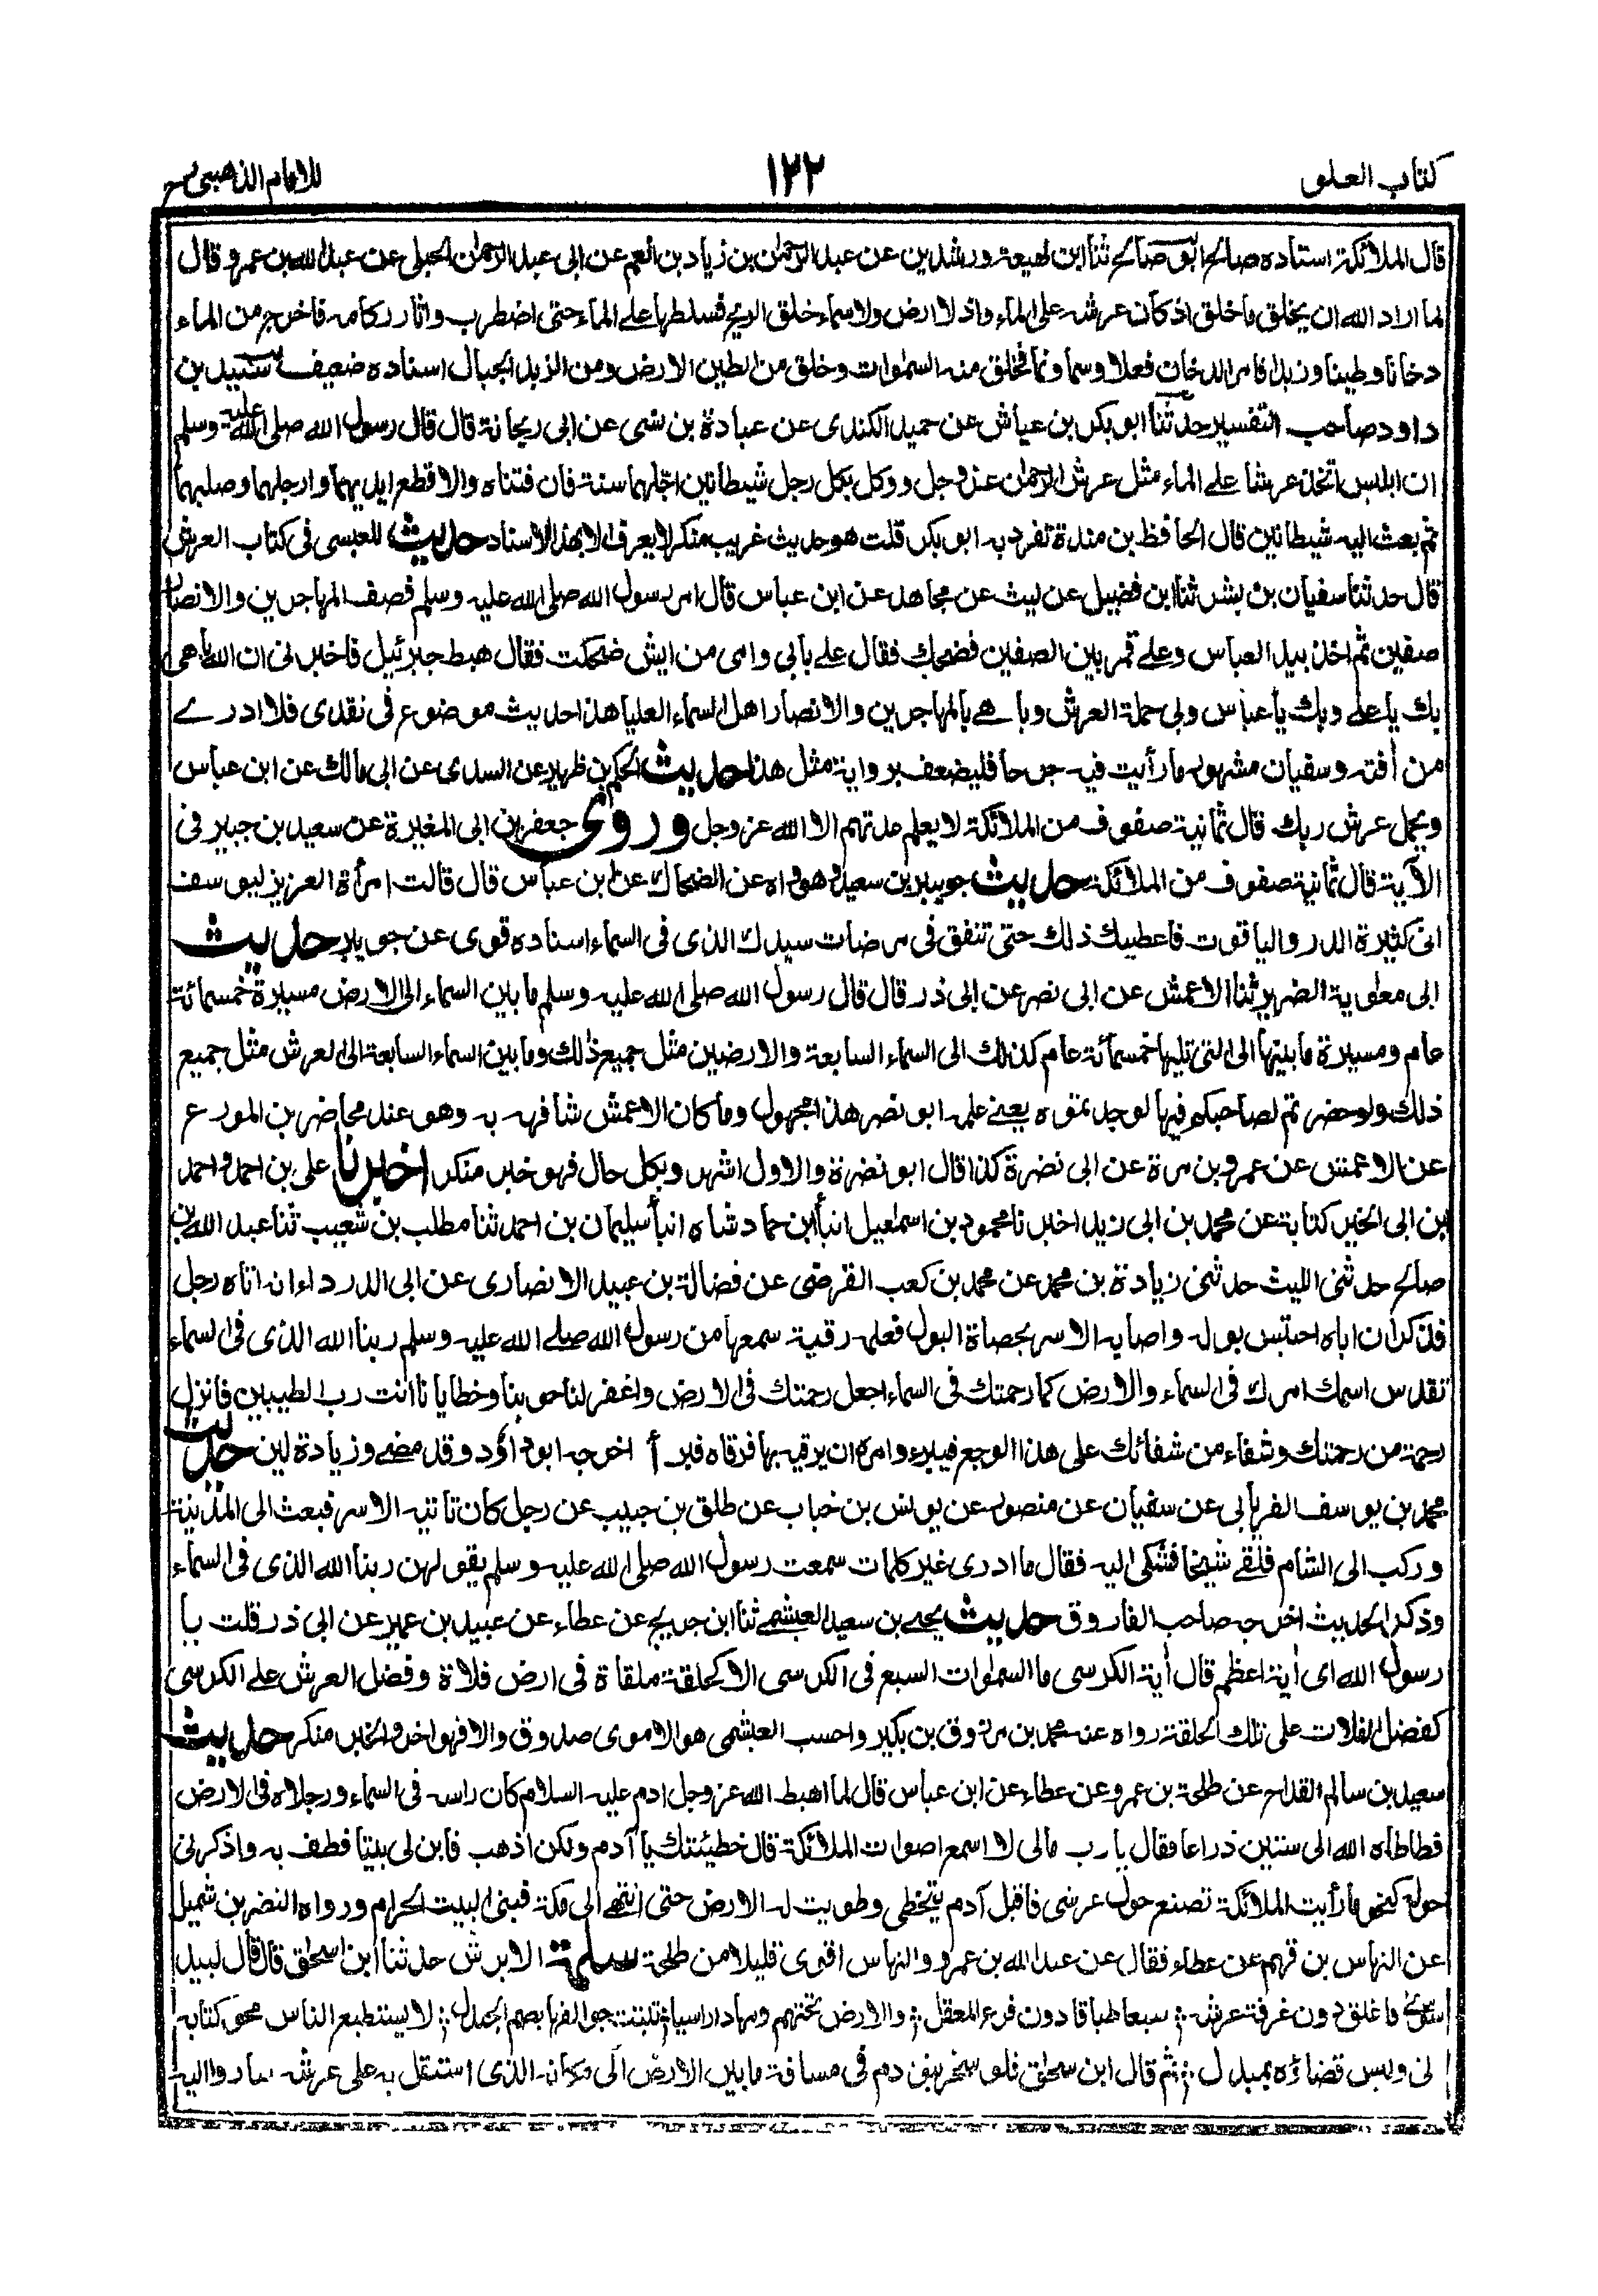 كتاب العلو
١٢٢
للامام الذهبي رح
قال الملائكة استاده صالح ابو صالح ثنا ابن لهيعة ورشدين عن عبد الرحمن بن زياد بن انعم عن ابى عبد الرحمن الحبلى عن عبد الله بن عمرو قال
لما اراد الله ان يخلق ما خلق اذ كان عرشه على الماء واذ لا ارض ولا سماء خلق الريح فسلطها على الماء حتى اضطرب واثار ركامه فاخرج من الماء
دخانا وطينا وزبدا فامر الدخان فعلا وسما ونما فخلق منه السموات وخلق من الطين الارض ومن الزبد الجبال اسناده ضعيف سنيد بن
داود صاحب التفسير حدثنا ابو بكر بن عياش عن حميد الكندى عن عبادة بن نسى عن ابى ريحانة قال قال رسول الله صلى الله عليه وسلم
ان ابليس اتخذ عرشا على الماء مثل عرش الرحمن عز وجل ووكل بكل رجل شيطانين اجلهما سنة فان فتناه والا قطع ايديهما وارجلهما وصلبهما
ثم بعث اليه شيطانين قال الحافظ بن مندة تفرد به ابو بكر قلت هو حديث غريب منكر لا يعرف الا بهذا الاسناد حديث للعبسى فى كتاب العرش
قال حدثنا سفيان بن بشر ثنا ابن فضيل عن ليث عن مجاهد عن ابن عباس قال امر رسول الله صلى الله عليه وسلم فصف المهاجرين والانصار
صفين ثم اخذ بيد العباس وعلى فمر بين الصفين فضحك فقال على بابى وامى من ايش ضحكت فقال هبط جبرئيل فاخبرنى ان الله باهى
بك يا على وبك يا عباس وبى حملة العرش وباهى بالمهاجرين والانصار اهل السماء العليا هذا حديث موضوع فى نقدى فلا ادرے
من أفته وسفيان مشهور ما رأيت فيه جرحا فليضعف برواية مثل هذا حديث الحكم بن ظهير عن السدى عن ابى مالك عن ابن عباس
ويحمل عرش ربك قال ثمانية صفوف من الملائكة لا يعلم عدتهم الا الله عز وجل وروى جعفر بن ابى المغيرة عن سعيد بن جبير فى
الآية قال ثمانية صفوف من الملائكة حديث جويبر بن سعيد وهو واه عن الضحاك عن ابن عباس قال قالت امرأة العزيز ليوسف
انى كثيرة الدر والياقوت فاعطيك ذلك حتى تنفق فى مرضات سيدك الذى فى السماء اسناده قوى عن جويبر حديث
ابى معاوية الضرير ثنا الاعمش عن ابى نصر عن ابى ذر قال قال رسول الله صلى الله عليه وسلم ما بين السماء الى الارض مسيرة خمسمائة
عام ومسيرة ما بينها الى التى تليها خمسمائة عام كذلك الى السماء السابعة والارضين مثل جميع ذلك وما بين السماء السابعة الى العرش مثل جميع
ذلك ولو حضر تم لصاحبكم فيها لوجدتموه يعنے علمه ابو نصر هذا مجهول وما كان الاعمش شافهه به وهو عند محاضر بن المورع
عن الاعمش عن عمرو بن مرة عن ابى نضرة كذا قال ابو نضرة والاول اشهر وبكل حال فهو خبر منكر اخبرنا على بن احمد واحمد
بن ابى الخير كتابة عن محمد بن ابى زيد اخبرنا محمود بن اسمعيل انبأ ابن حماد شاه انبأ سليمان بن احمد ثنا مطلب بن شعيب ثنا عبد الله بن
صالح حدثنى الليث حدثنى زيادة بن محمد عن محمد بن كعب القرضى عن فضالة بن عبيد الانصارى عن ابى الدرداء انه اتاه رجل
فذكر ان اباه احتبس بوله واصابه الاسر بحصاة البول فعلمه رقية سمعها من رسول الله صلے الله عليه وسلم ربنا الله الذى فى السماء
تقدس اسمك امرك فى السماء والارض كما رحمتك فى السماء اجعل رحمتك فى الارض واغفر لنا حوبنا وخطايانا انت رب الطيبين فانزل
رحمة من رحمتك وشفاء من شفائك على هذا الوجع فيبرء وامره ان يرقيه بها فرقاه فبرأ اخرجه ابو داؤد وقد مضے وزيادة لين حديث
محمد بن يوسف الفريابى عن سفيان عن منصور عن يونس بن خباب عن طلق بن حبيب عن رجل كان تانيه الاسر فبعث الى المدينة
وركب الى الشام فلقے شيخا فشكى اليه فقال ما ادرى غير كلمات سمعت رسول الله صلى الله عليه وسلم يقولهن ربنا الله الذى فى السماء
وذكر الحديث اخرجه صاحب الفاروق حديث يحيے بن سعيد العبشمے ثنا ابن جريج عن عطاء عن عبيد بن عمير عن ابى ذر قلت يا
رسول الله اى أية اعظم قال أية الكرسى ما السموات السبع فى الكرسى الا كحلقة ملقاة فى ارض فلاة وفضل العرش على الكرسى
كفضل الفلات على تلك الحلقة رواه عنه محمد بن مرزوق بن بكير واحسب العبشمى هو الاموى صدوق والا فهو اخر والخبر منكر حديث
سعيد بن سالم القداح عن طلحة بن عمرو عن عطاء عن ابن عباس قال لما اهبط الله عز وجل ادم عليه السلام كان راسه فى السماء ورجلاه فى الارض
فطاطاه الله الى ستين ذراعا فقال يا رب مالى لا اسمع اصوات الملائكة قال خطيئتك يا آدم ولكن اذهب فابن لى بيتا فطف به واذكرنى
حوله كنحو ما رأيت الملائكة تصنع حول عرشى فاقبل آدم يتخطى وطويت له الارض حتى انتهے الى مكة فبنى البيت الحرام ورواه النضر بن شميل
عن النهاس بن قهم عن عطاء فقال عن عبد الله بن عمرو والنهاس اقوى قليلا من طلحة سلمة الابرش حدثنا ابن اسحاق قال قال لبيد
سوى فاغلق دون غرفة عرشه ؛ سبعا طباقا دون فرع المعقل ؛ والارض تحتهم ومهادا راسيا ؛ ثبتت جوالفها بصم الجندل ؛ لا يستطيع الناس محو كتابه
لنى وليس قضاؤه بمبدل ؛ ثم قال ابن سحاق فلو سخر بنو دم فى مسافة ما بين الارض الى مكانه الذى استقل به على عرشه ساروا اليه